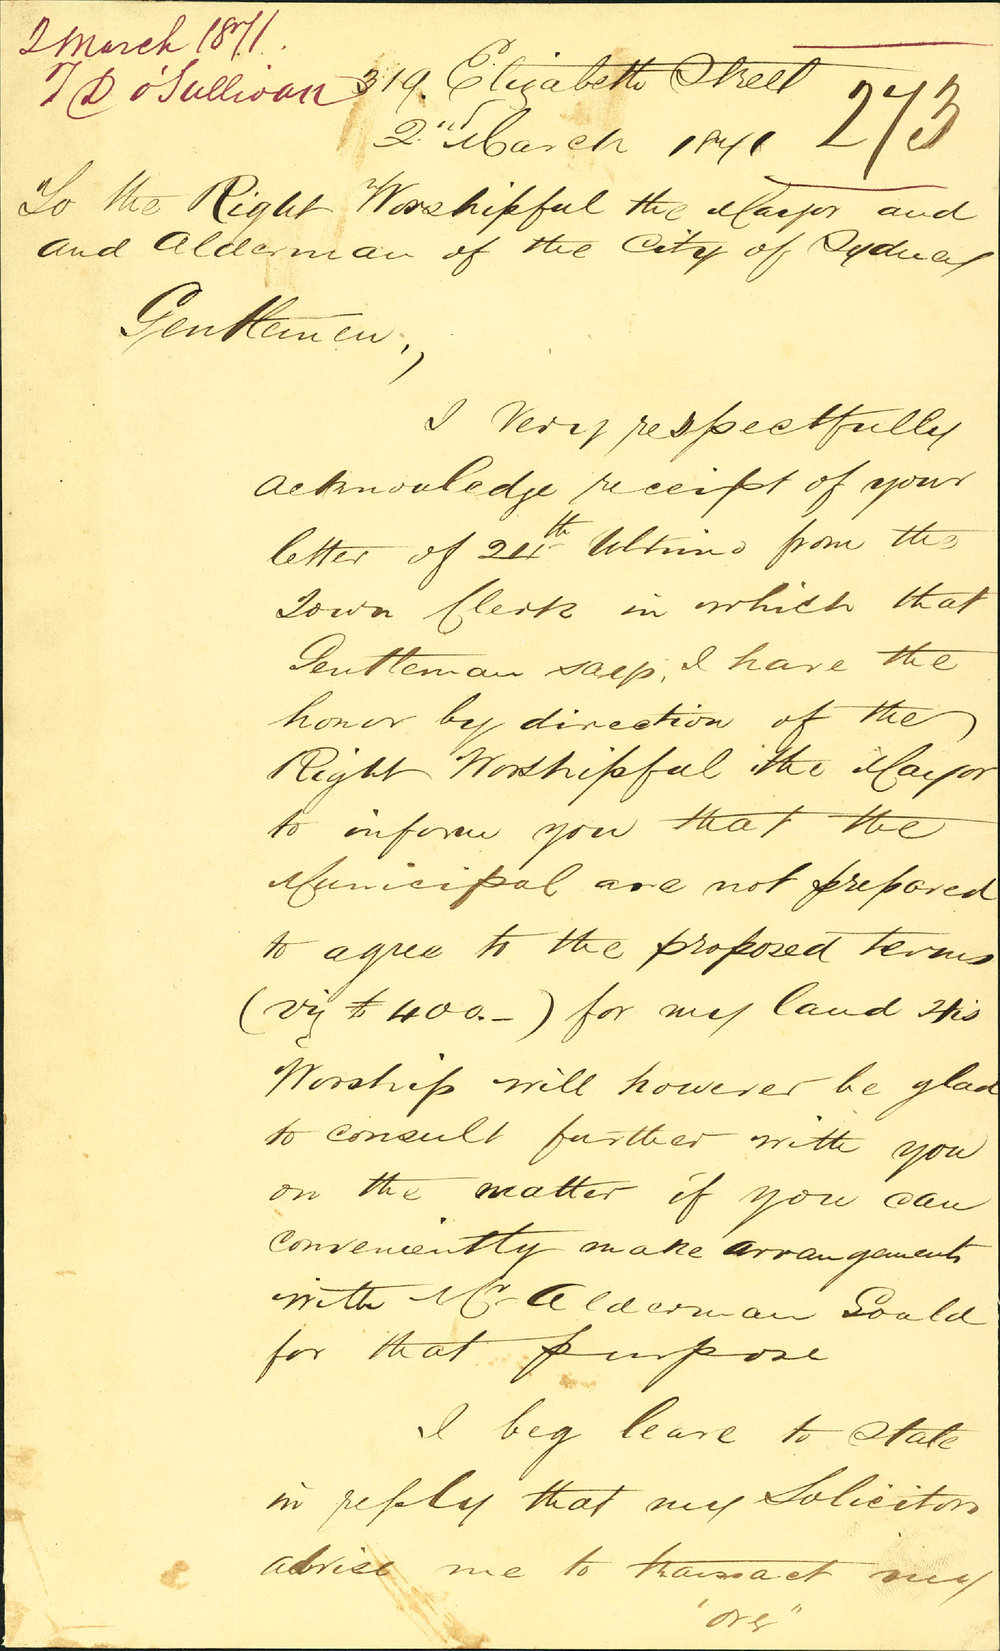 2 March 1871.
T D O'Sullivan
319. Elizabeth Street
273
2nd March 1871
To the Right Worshipful the Mayor and
and Alderman of the City of Sydney
Gentlemen,
I very respectfully
acknowledge receipt of your
letter of 24th Ultimo from the
Town Clerk in which that
Gentleman says, I have the
honor by direction of the
Right Worshipful the Mayor
to inform you that the
Municipal are not prepared
to agree to the proposed terms
(viz £400.-) for my land His
Worship will however be glad
to consult further with you
on the matter if you can
conveniently make arrangements
with Mr Alderman Gould
for that purpose
I beg leave to state
in reply that my Solicitors
advise me to transact my